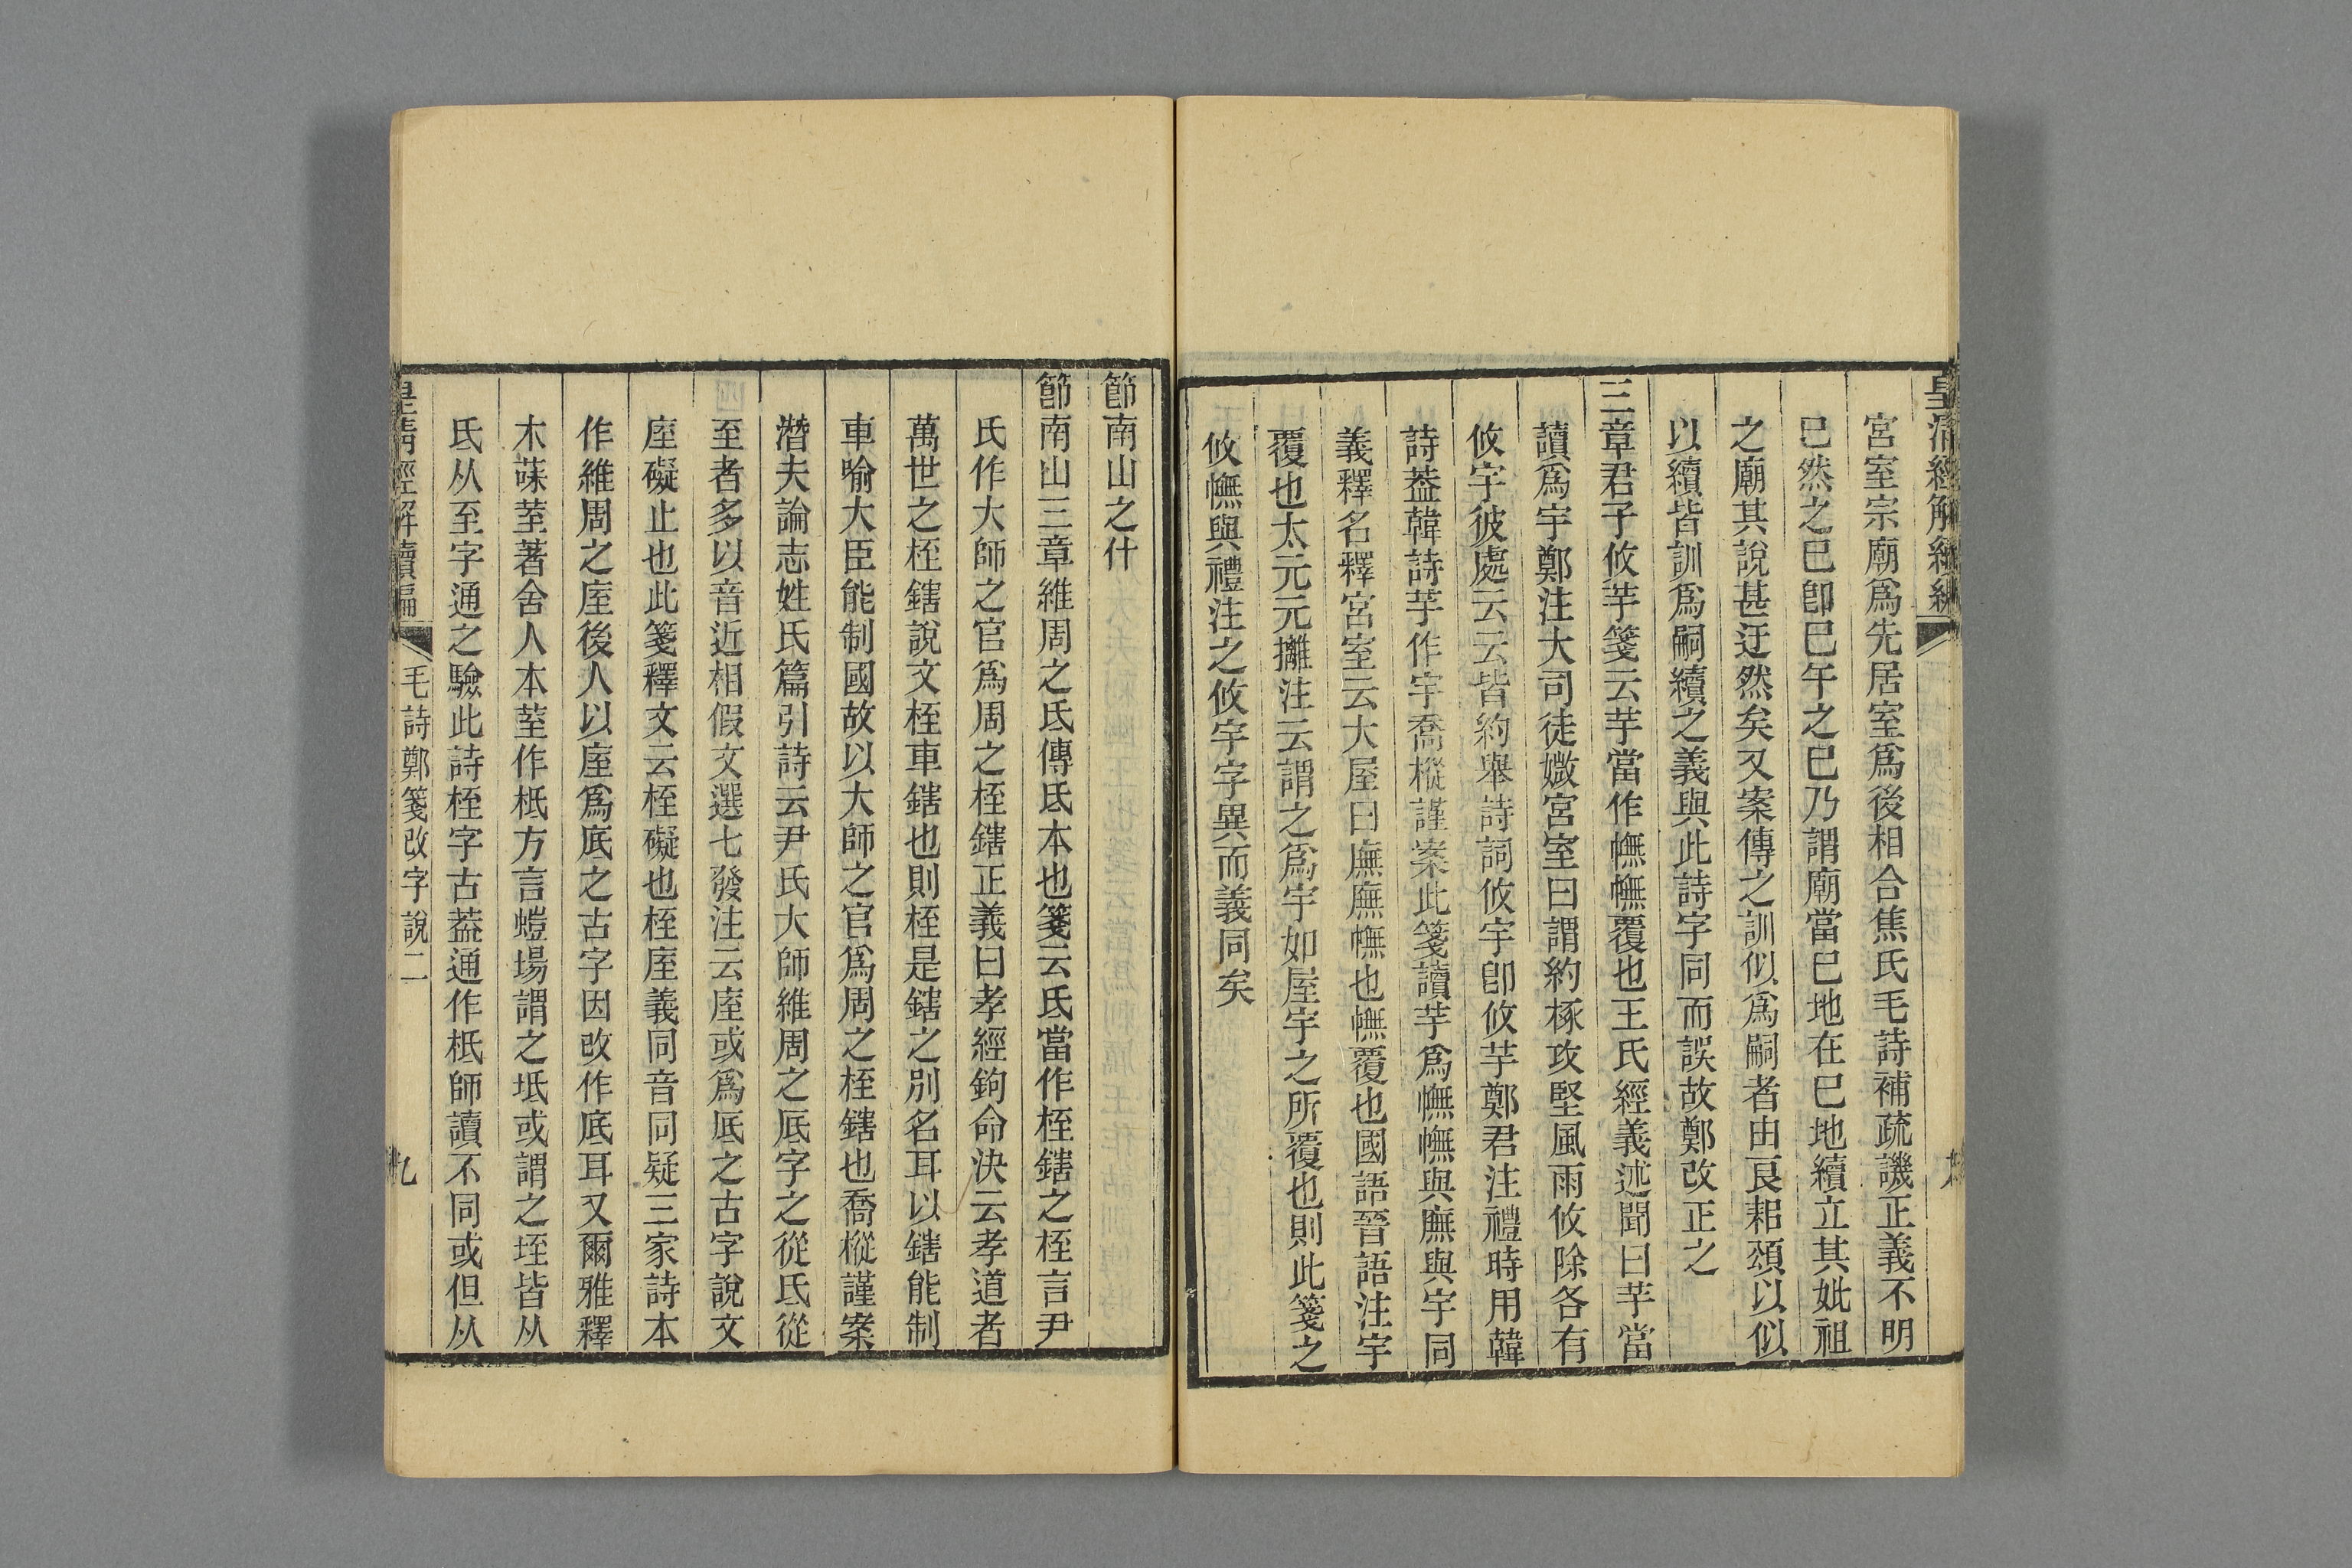 皇清經解續編
宮室宗廟爲先居室爲後相合焦氏毛詩補疏譏正義不明
巳然之巳卽巳午之巳乃謂廟當巳地在巳地續立其妣祖
之廟其說甚迂然矣又案傳之訓似爲嗣者由良耜頌以似
以續皆訓爲嗣續之義與此詩字同而誤故鄭改正之
三章君子攸芋箋云芋當作幠幠覆也王氏經義述聞曰芋當
讀爲宇鄭注大司徒媺宮室曰謂約椓攻堅風雨攸除各有
攸宇彼處云云皆約舉詩詞攸宇卽攸芋鄭君注禮時用韓
詩葢韓詩芋作宇喬樅謹案此箋讀芋爲幠幠與廡與宇同
義釋名釋宮室云大屋曰廡廡幠也幠覆也國語晉語注宇
覆也太元元攡注云謂之爲宇如屋宇之所覆也則此箋之
攸幠與禮注之攸宇字異而義同矣
節南山之什
節南山三章維周之氐傳氐本也箋云氐當作桎鎋之桎言尹
氏作大師之官爲周之桎鎋正義曰孝經鉤命決云孝道者
萬世之桎鎋說文桎車鎋也則桎是鎋之別名耳以鎋能制
車喻大臣能制國故以大師之官爲周之桎鎋也喬樅謹案
潛夫論志姓氏篇引詩云尹氏大師維周之厎字之從氐從
至者多以音近相假文選七發注云庢或爲厎之古字說文
庢礙止也此箋釋文云桎礙也桎庢義同音同疑三家詩本
作維周之庢後人以庢爲底之古字因改作底耳又爾雅釋
木菋荎著舍人本荎作柢方言螘場謂之坻或謂之垤皆从
氐从至字通之驗此詩桎字古葢通作柢師讀不同或但从
皇清經解續編
毛詩鄭箋改字說二
九